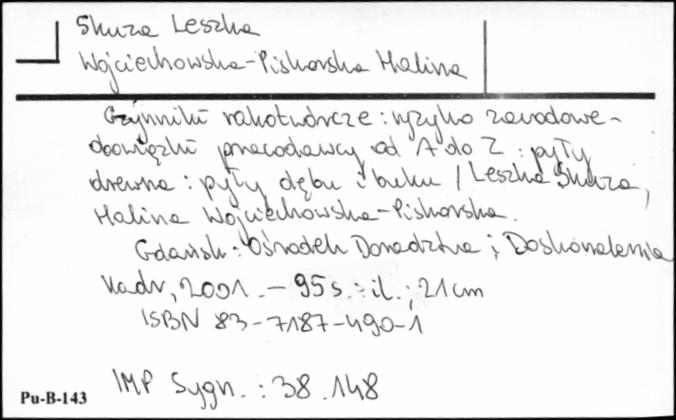 Skuza Leszka
Wojciechowska-Piskorska Halina
Czynniki rakotwórcze : ryzyko zawodowe -
obowiązki pracodawcy od A do Z : pyły
drewna : pyły dębu i buku / Leszka Skuza,
Halina Wojciechowska-Piskorska.
Gdańsk : Ośrodek Doradztwa i Doskonalenia
Kadr, 2001. - 95 s. : il. ; 21 cm
ISBN 83-7187-490-1
IMP Sygn. : 38.148
Pu-B-143